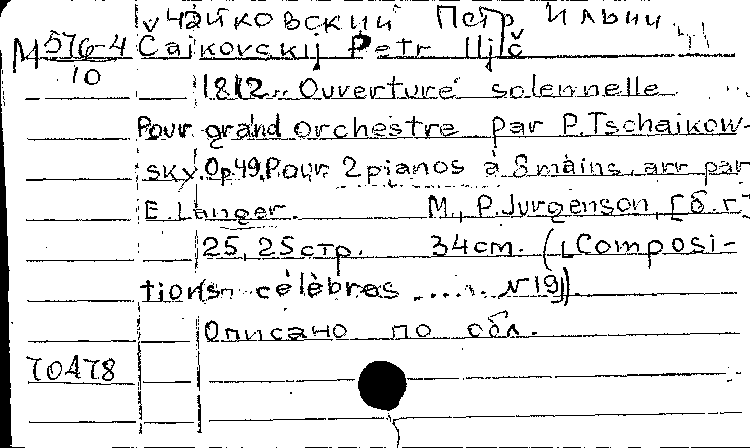 Чайковский Петр Ильич.
М 576-4 Čaikovskij Petr Iljč
10
1812.. Ouverture solennelle
pour grand orchestre par P.Tschaikow-
sky.Op.49.Pour 2 pianos à 8 mains, arr par
E. Langer. M., P.Jurgenson, [б.г.]
25, 25 стр. 34 cm. (Composi-
tions célèbres ..... N 19)
Описано по обл.
70478